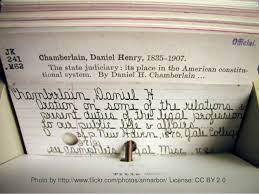 Official.
JK
241
.M82
Chamberlain, Daniel Henry, 1835-1907.
The state judiciary: its place in the American constitu-
tional system. By Daniel H. Chamberlain ...
Chamberlain, Daniel H
some of the relations &
present duties of the legal profession
to our public life & affairs
New Haven, 1875, Yale College
Photo by http://www.flickr.com/photos/annarbor/ License: CC BY 2.0